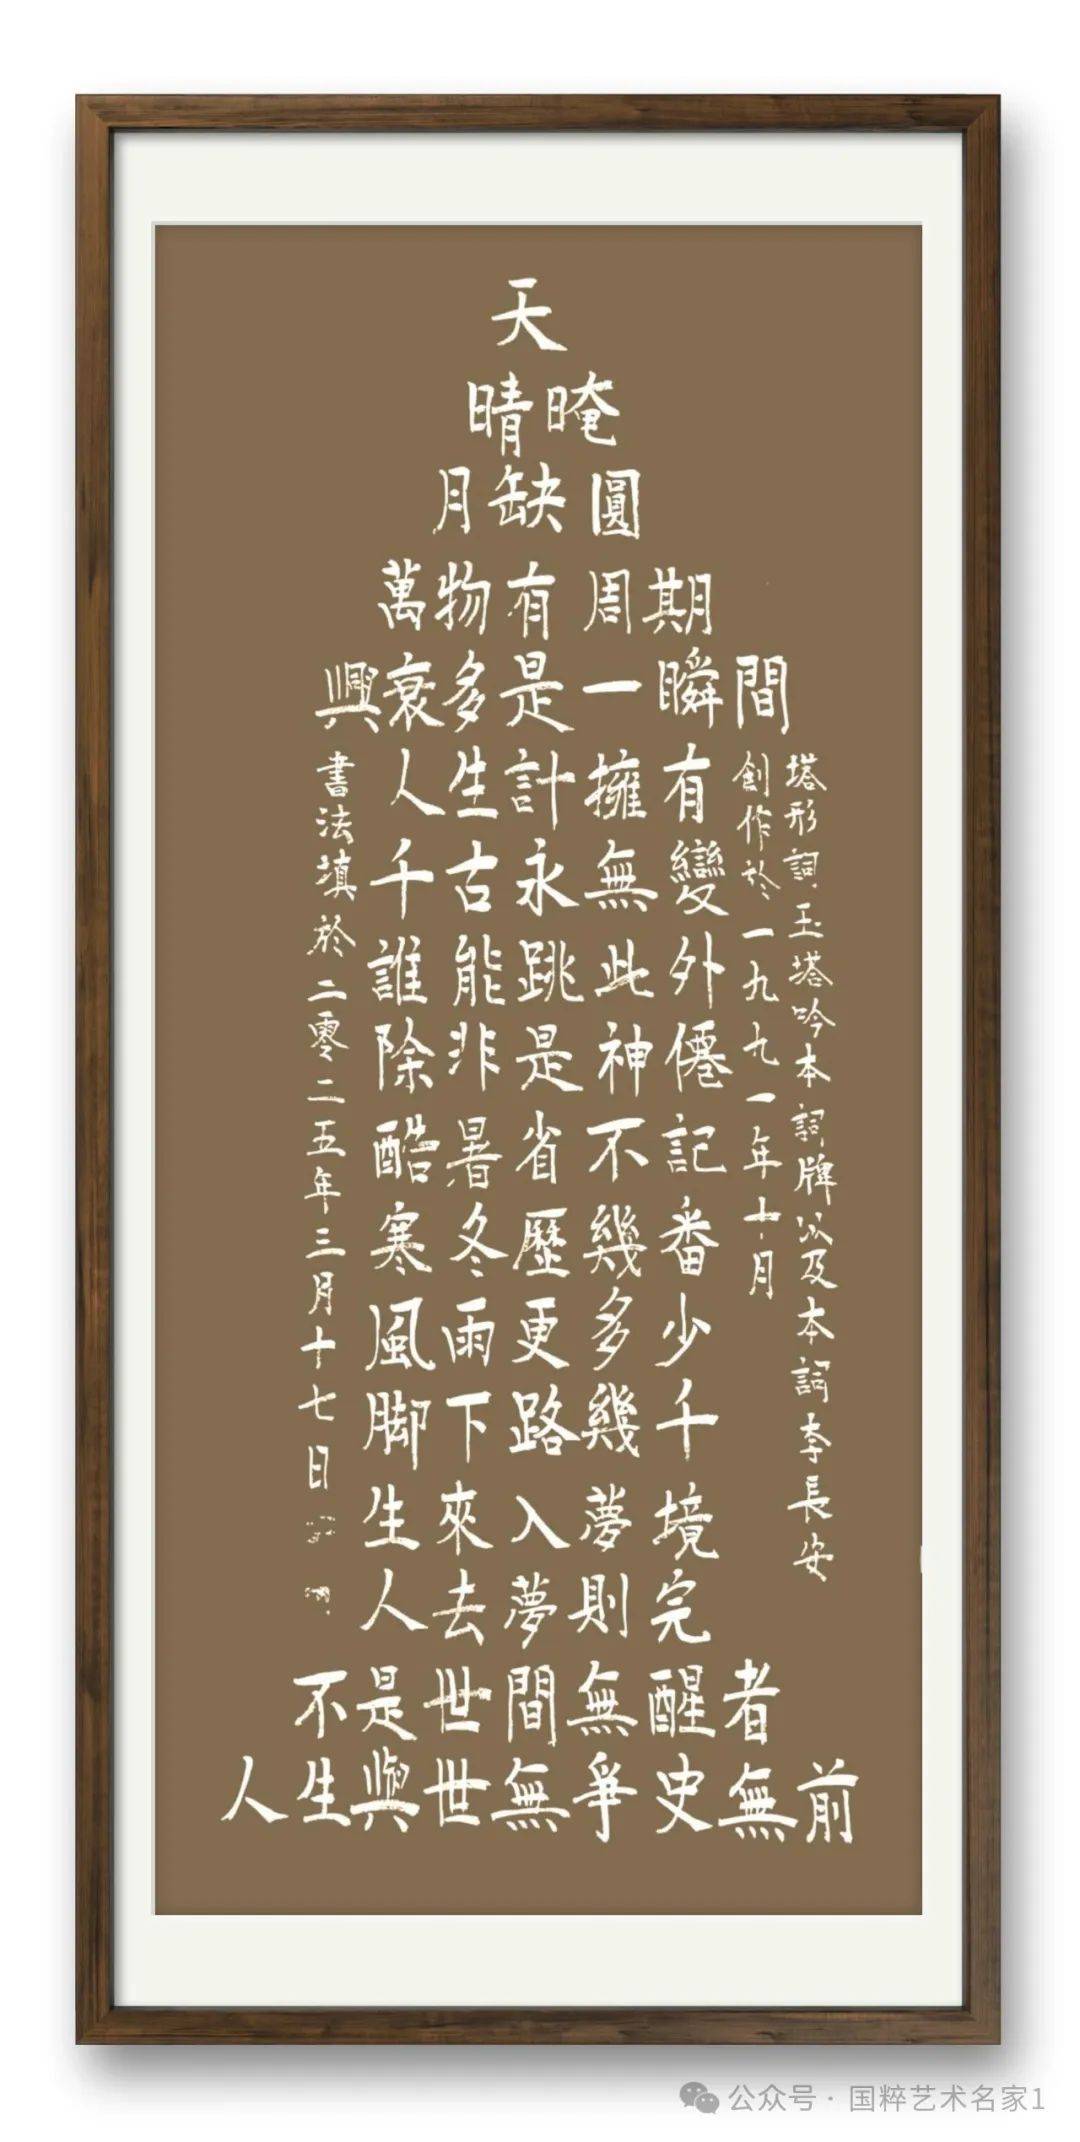 天
晴晻
月缺圓
萬物有周期
興衰多是一瞬間
人生計擁有
千古永無變
誰能跳此外
除非是神僊
酷暑省不記
寒冬歷幾番
風雨更多少
脚下路幾千
生來入夢境
人去夢則完
不是世間無醒者
人生與世無爭史無前
塔形詞玉塔吟本詞牌以及本詞李長安
創作於一九九一年十月
書法填於二零二五年三月十七日
公众号·国粹艺术名家1